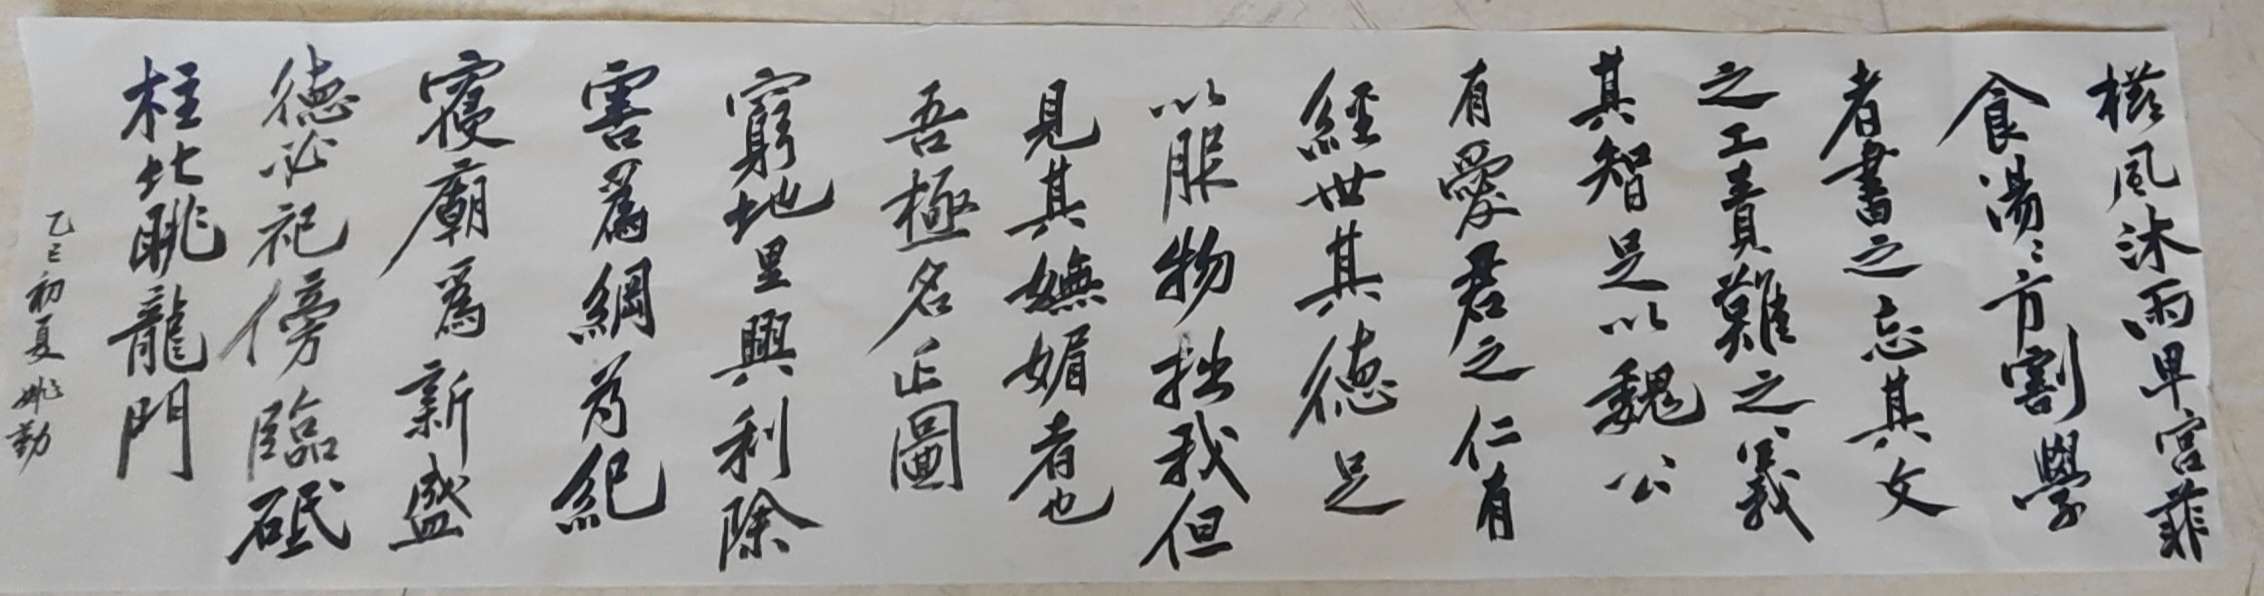 櫛風沐雨卑宮菲
食湯〻方割學
者書之忘其文
之工責難之義
其智足以魏公
有愛君之仁有
經世其德足
以服物拙我但
見其嫵媚者也
吾極名正圖
窮地里興利除
害爲綱爲紀
寢廟爲新盛
德必祀傍臨砥
柱北眺龍門
乙巳初夏姚勤